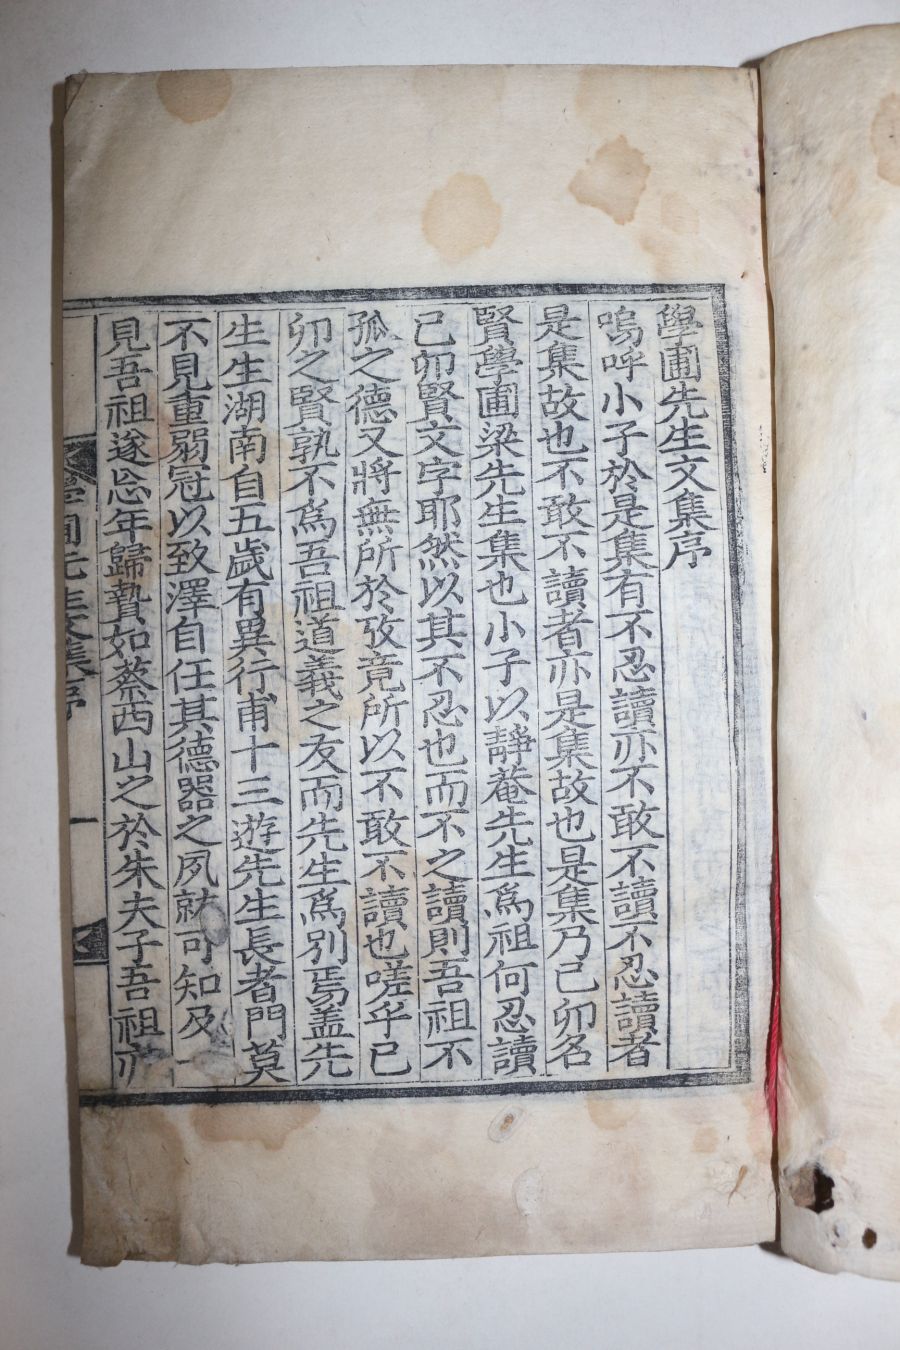 學圃先生文集序
嗚呼小子於是集有不忍讀亦不敢不讀不忍讀者
是集故也不敢不讀者亦是集故也是集乃己卯名
賢學圃梁先生集也小子以靜菴先生爲祖何忍讀
己卯賢文字耶然以其不忍也而不之讀則吾祖不
孤之德又將無所於攷竟所以不敢不讀也嗟乎已
卯之賢孰不爲吾祖道義之友而先生爲別焉盖先
生生湖南自五歲有異行甫十三遊先生長者門莫
不見重弱冠以致澤自任其德器之夙就可知及一
見吾祖遂忘年歸贄如蔡西山之於朱夫子吾祖
學圃先生文集序
一